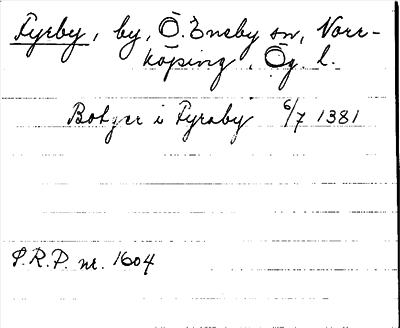 Fyrby, by, Ö. Eneby sn, Norr-
köping, Ög. l.
Botger i Fyraby 6/7 1381
P.R.P. nr. 1604